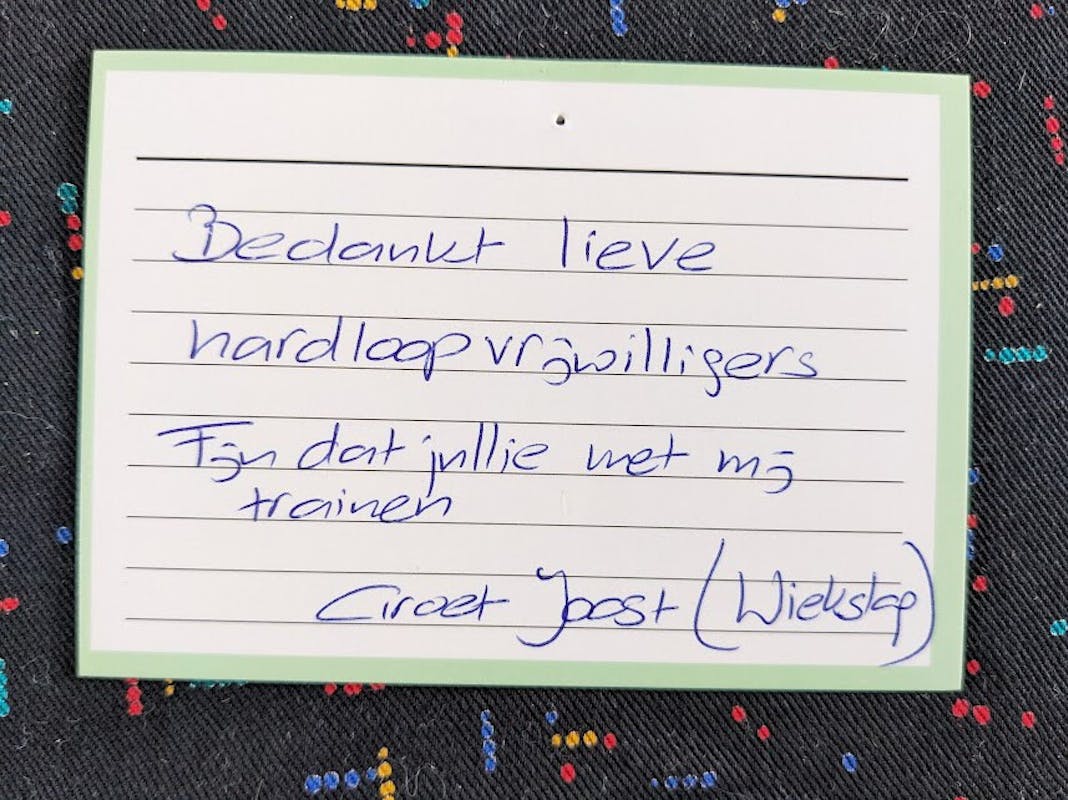 Bedankt lieve
hardloopvrijwilligers
Fijn dat jullie met mij
trainen
Groet Joost (Wiekslag)